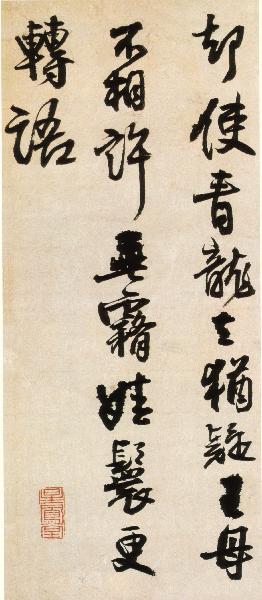 却使青龍去猶疑王母
不相許垂霧娃鬟更
轉語